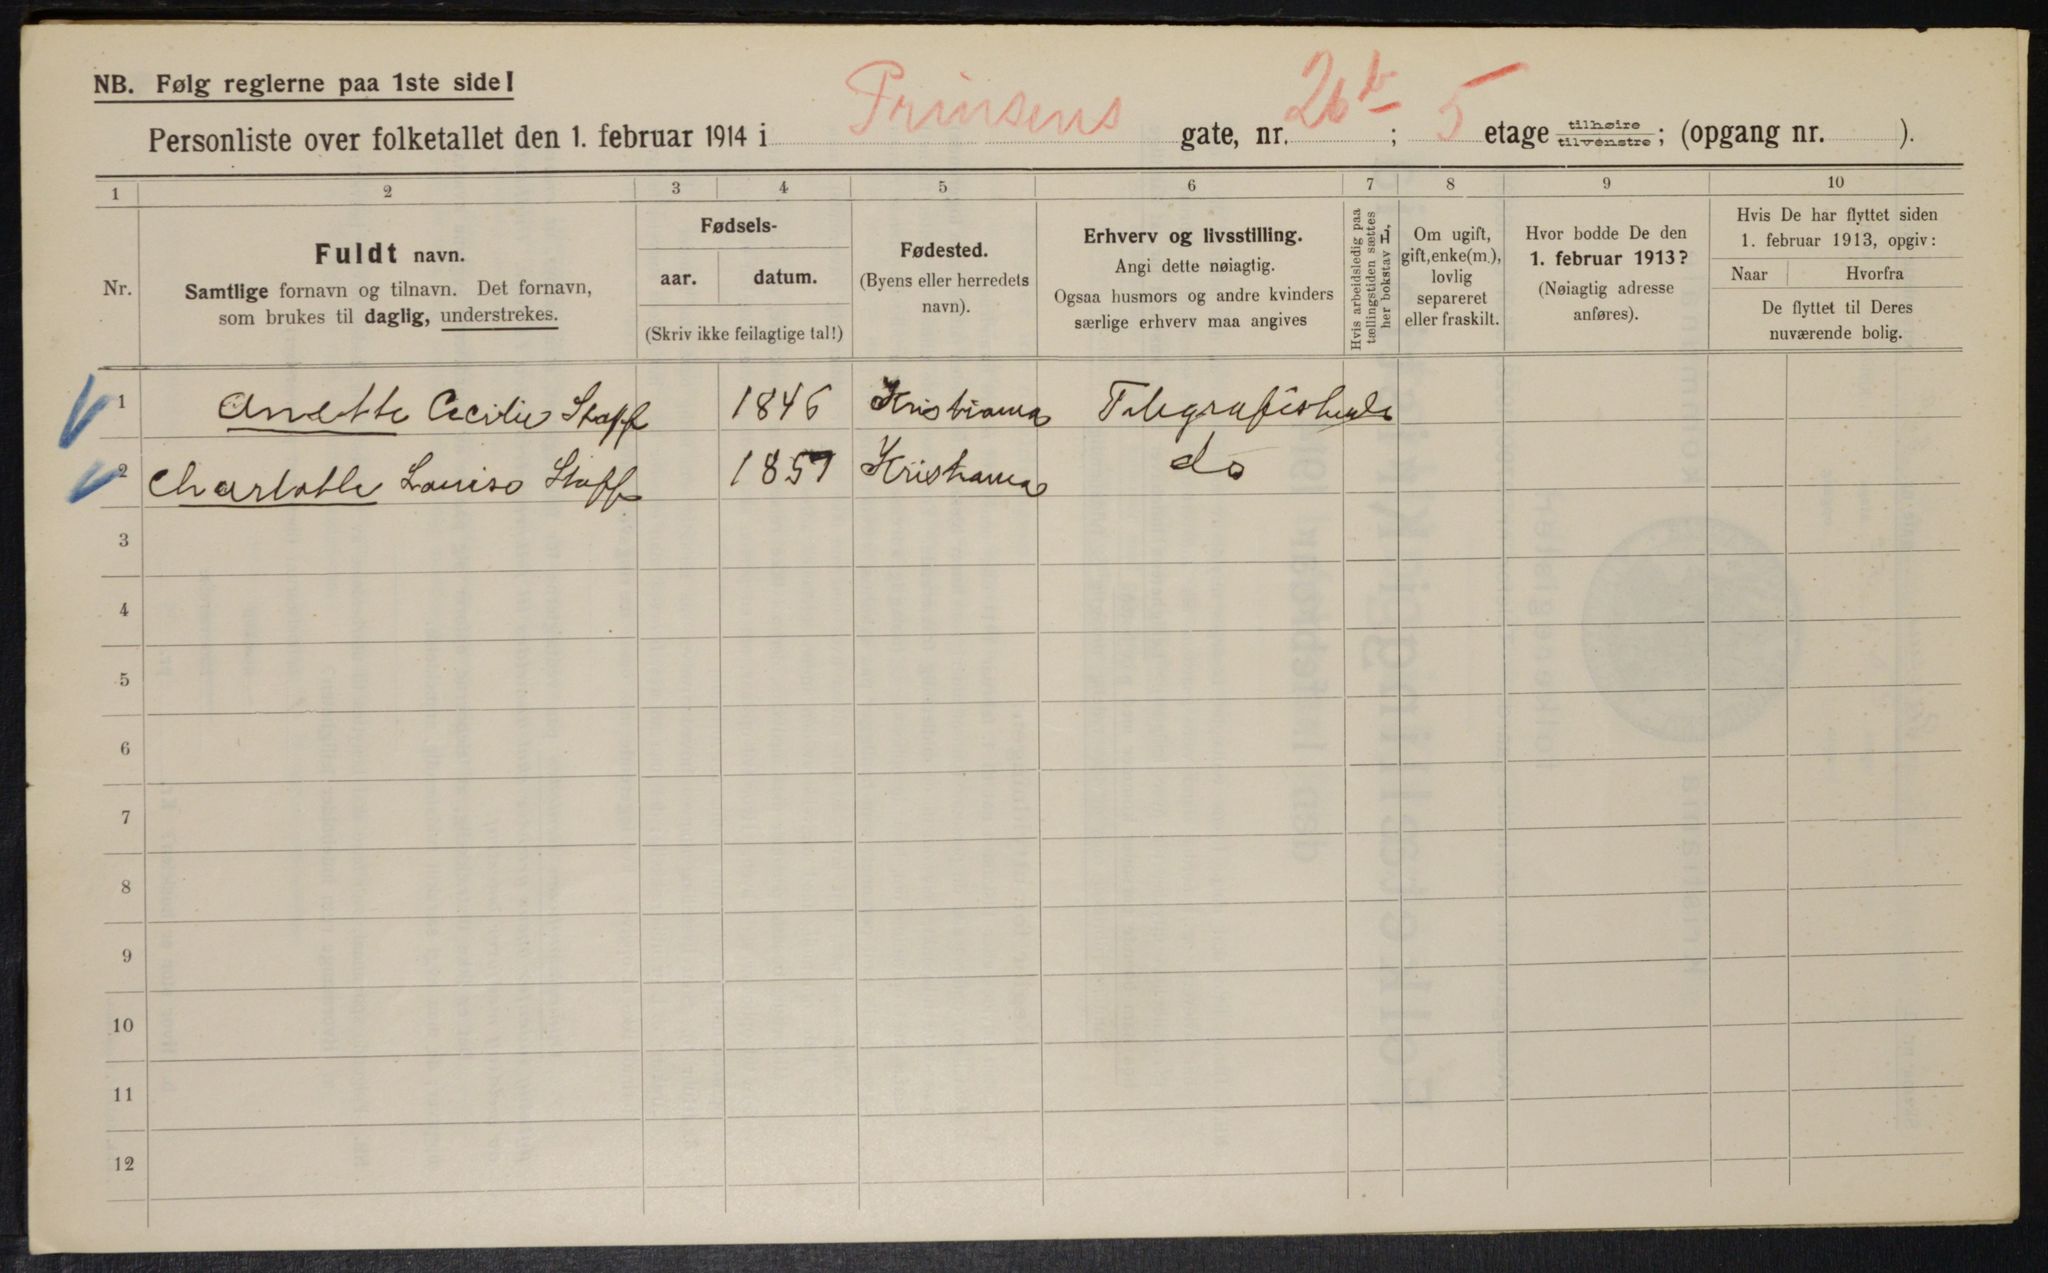 NB. Følg reglerne paa 1ste side!
Personliste over folketallet den 1. februar 1914 i Prinsens gate, nr. 26 b; 5 etage tilhøire tilvenstre; (opgang nr. ).
1 2 3 4 5 6 7 8 9 10
Nr.
Fuldt navn.
Samtlige fornavn og tilnavn. Det fornavn,
som brukes til daglig, understrekes.
Fødsels-
aar. datum.
(Skriv ikke feilagtige tal!)
Fødested.
(Byens eller herredets
navn).
Erhverv og livsstilling.
Angi dette nøiagtig.
Ogsaa husmors og andre kvinders
særlige erhverv maa angives
Hvis arbeidsledig paa
tællingstiden sættes
her bokstav L.
Om ugift,
gift, enke(m.),
lovlig
separeret
eller fraskilt.
Hvor bodde De den
1. februar 1913?
(Nøiagtig adresse
anføres).
Hvis De har flyttet siden
1. februar 1913, opgiv:
Naar Hvorfra
De flyttet til Deres
nuværende bolig.
1 Anette Cecilie Staff 1846 Kristiania
2 Charlotte Louise Staff 1857 Kristiania do
3
4
5
6
7
8
9
10
11
12